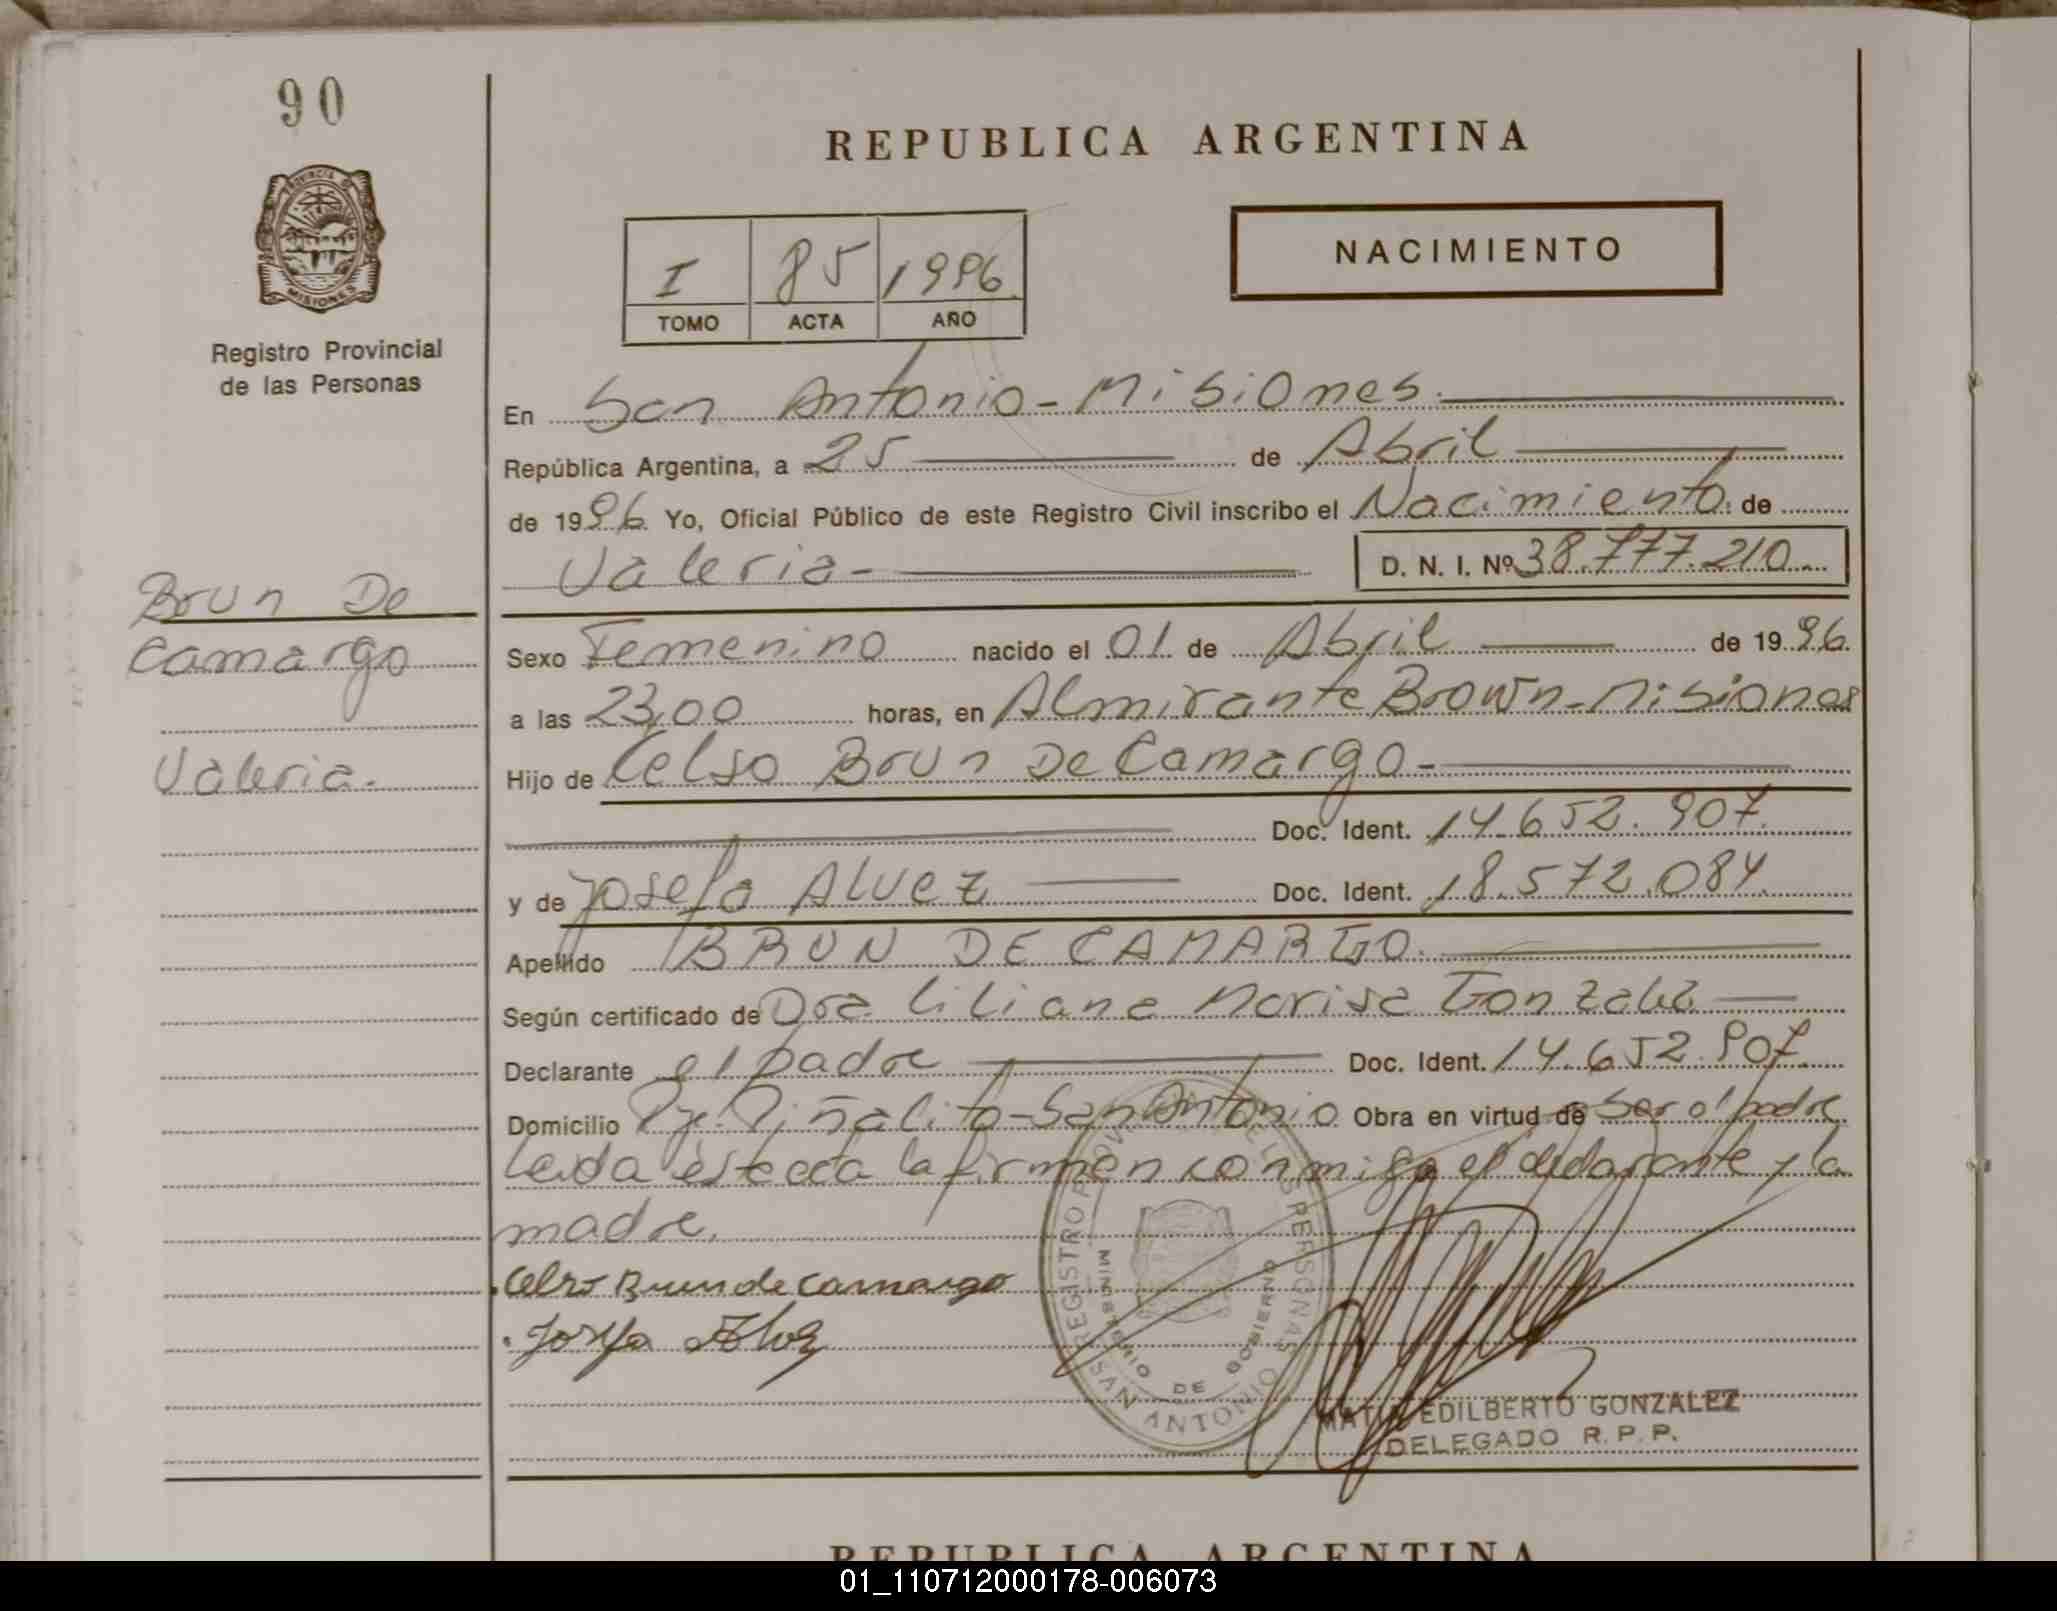 90
PROVINCIA DE
MISIONES
Registro Provincial
de las Personas
REPUBLICA ARGENTINA
NACIMIENTO
I 85 1996
TOMO ACTA AÑO
En San Antonio - Misiones.
República Argentina, a 25 de Abril
de 1996 Yo, Oficial Público de este Registro Civil inscribo el Nacimiento de
Valeria - D. N. I. Nº 38.777.210
Brun De
Camargo
Valeria.
Sexo Femenino nacido el 01 de Abril de 1996.
a las 23,00 horas, en Almirante Brown - Misiones
Hijo de Celso Brun De Camargo -
Doc. Ident. 14.652.907.
y de Josefa Alvez Doc. Ident. 18.572.084.
Apellido BRUN DE CAMARGO.
Según certificado de Dra. Liliana Marisa Gonzalez
Declarante el padre Doc. Ident. 14.652.907.
Domicilio Piñalito - San Antonio Obra en virtud de ser el padre
Leida este acta la firman conmigo el declarante y la
madre.
Celso Brun de Camargo
Josefa Alvez
REGISTRO PROVINCIAL DE LAS PERSONAS
MINISTERIO DE GOBIERNO
SAN ANTONIO
EDILBERTO GONZALEZ
DELEGADO R. P. P.
REPUBLICA ARGENTINA
01_110712000178-006073